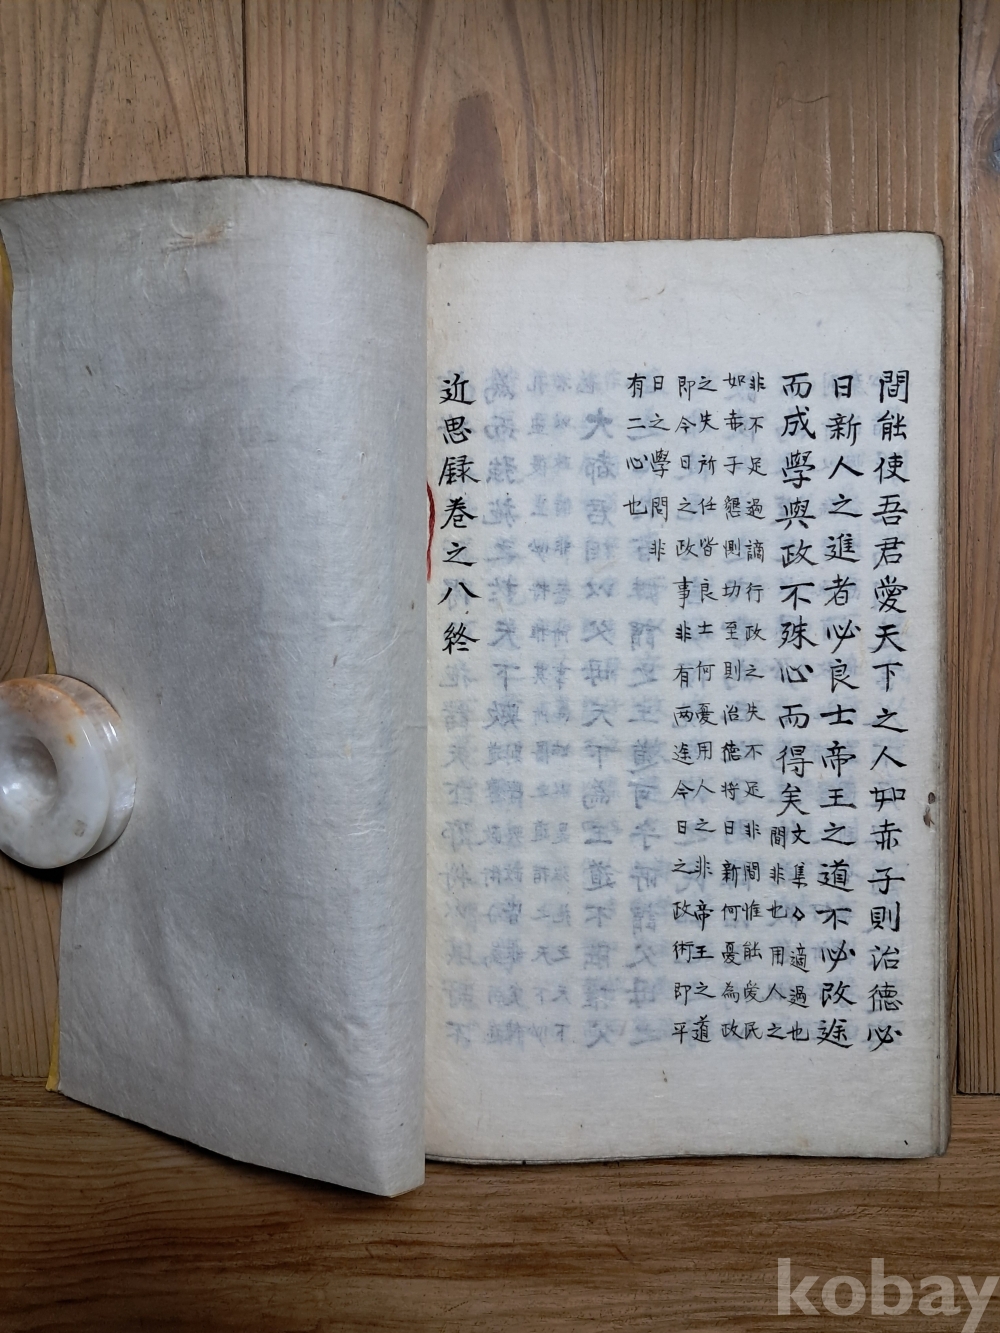 間能使吾君愛天下之人如赤子則治德必
日新人之進者必良士帝王之道不必改途
而成學與政不殊心而得矣
文集〻適過也
間非也用人之
非不足過謫行政之失不足非間惟能愛民
如赤子懇惻切至則治德将日新何憂為政
之失所任皆良士何憂用人之非帝王之道
即今日之政事非有两途今日之政術即平
日之學問非
有二心也
近思録巻之八終
kobay